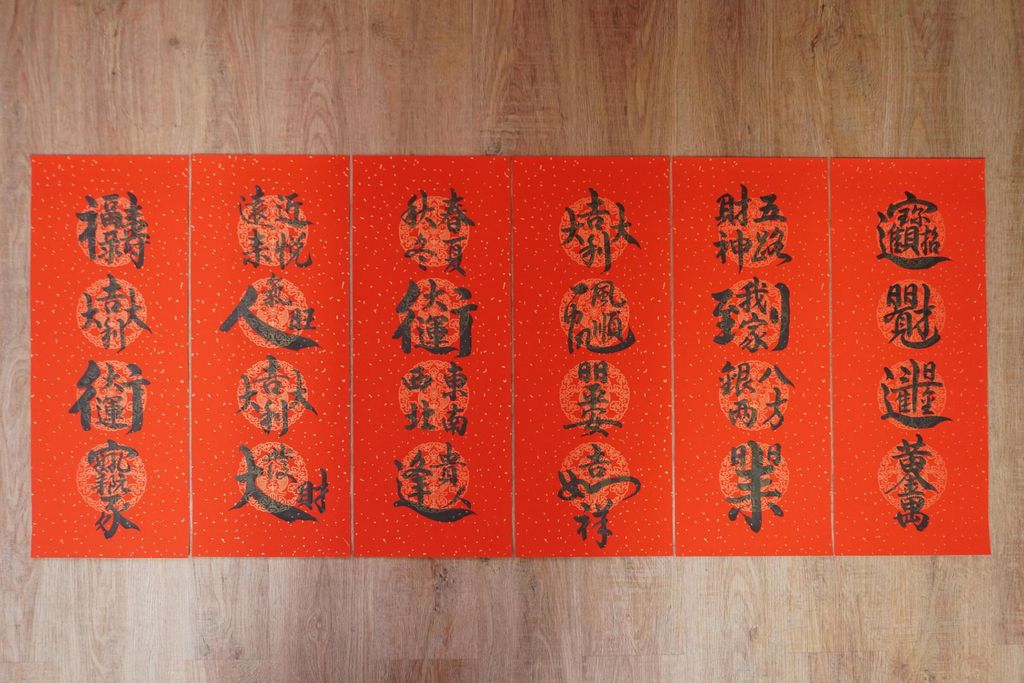 招財進寶
日日見財
黃金萬兩
五路財神
到我家
八方銀兩
日日來
大吉大利
一帆風順
日日平安
吉祥如
春夏秋冬
行大運
東南西北
逢貴人
近悅遠來
人氣旺
大吉大利
發大財
福祿壽
大吉大利
行大運